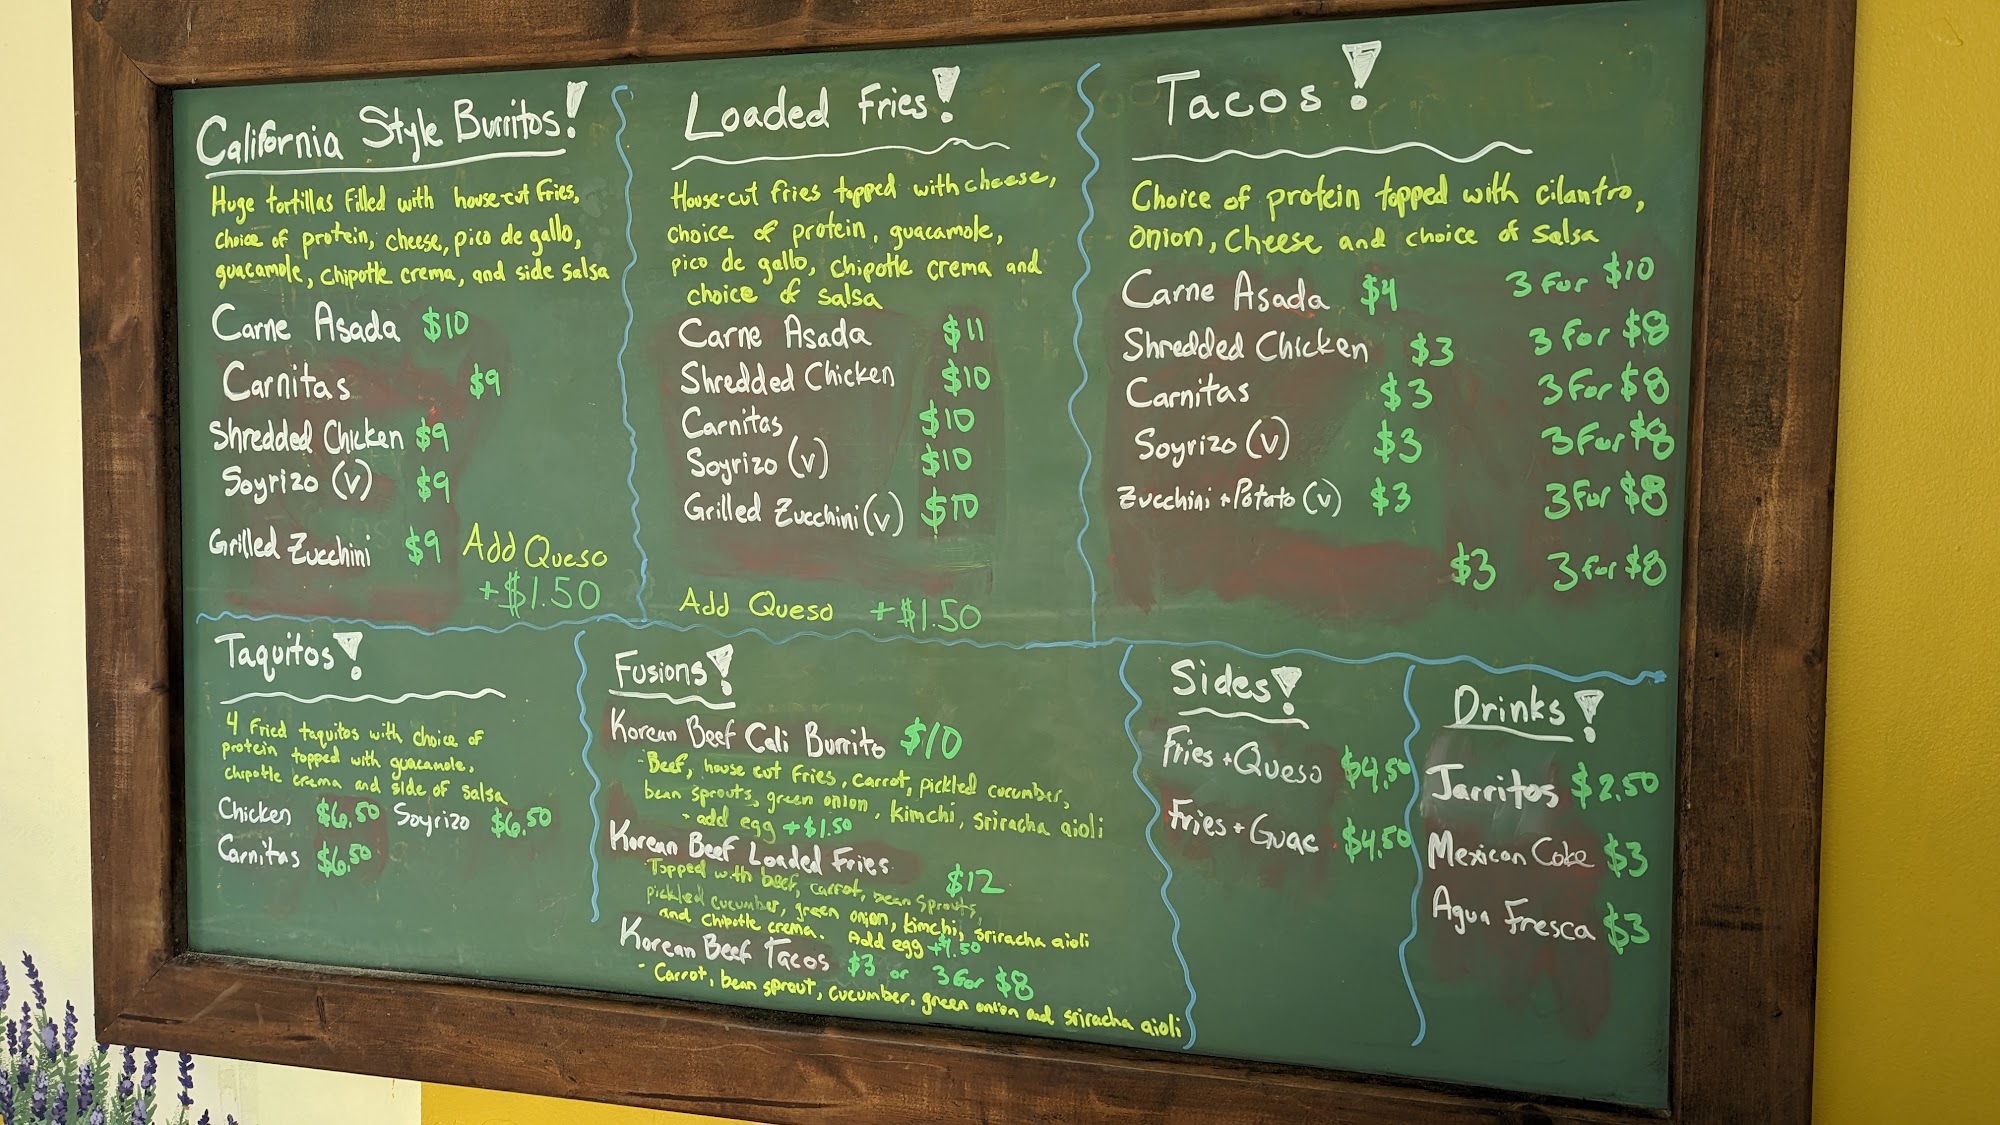 California Style Burritos!
Huge tortillas filled with house-cut fries,
choice of protein, cheese, pico de gallo,
guacamole, chipotle crema, and side salsa
Carne Asada $10
Carnitas $9
Shredded Chicken $9
Soyrizo (v) $9
Grilled Zucchini $9
Add Queso
+$1.50
Loaded Fries!
House-cut fries topped with cheese,
choice of protein, guacamole,
pico de gallo, chipotle crema and
choice of salsa
Carne Asada $11
Shredded Chicken $10
Carnitas $10
Soyrizo (v) $10
Grilled Zucchini (v) $10
Add Queso +$1.50
Tacos!
Choice of protein topped with cilantro,
onion, cheese and choice of salsa
Carne Asada $4 3 for $10
Shredded Chicken $3 3 for $8
Carnitas $3 3 for $8
Soyrizo (v) $3 3 for $8
Zucchini + Potato (v) $3 3 for $8
$3 3 for $8
Taquitos!
4 fried taquitos with choice of
protein topped with guacamole,
chipotle crema and side of salsa
Chicken $6.50 Soyrizo $6.50
Carnitas $6.50
Fusions!
Korean Beef Cali Burrito $10
- Beef, house cut fries, carrot, pickled cucumber,
bean sprouts, green onion, kimchi, sriracha aioli
- add egg +$1.50
Korean Beef Loaded Fries
$12
Topped with beef, carrot, bean sprouts,
pickled cucumber, green onion, kimchi, sriracha aioli
and chipotle crema. Add egg +$1.50
Korean Beef Tacos $3 or 3 for $8
- Carrot, bean sprout, cucumber, green onion and sriracha aioli
Sides!
Fries + Queso $4.50
Fries + Guac $4.50
Drinks!
Jarritos $2.50
Mexican Coke $3
Agua Fresca $3